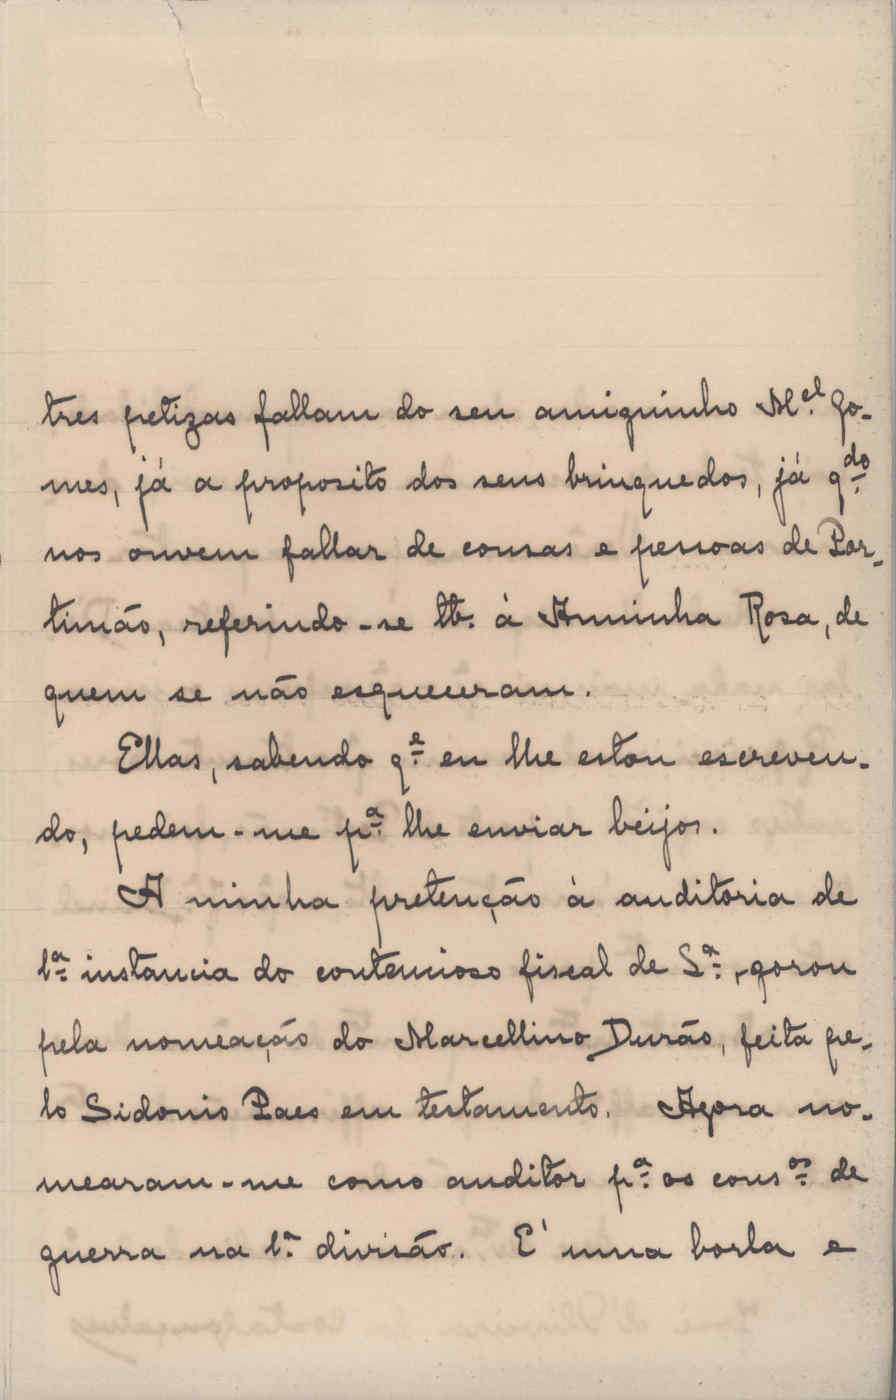 tres petizas fallam do seu amiguinho M.el Go-
mes, já a proposito dos seus brinquedos, já q.do
nos ouvem fallar de cousas e pessoas de Por-
timão, referindo-se tb. à Anninha Rosa, de
quem se não esqueceram.
Ellas, sabendo q.e eu lhe estou escreven-
do, pedem-me p.a lhe enviar beijos.
A minha pretenção à auditoria de
1.a instancia do contencioso fiscal de L.a, gorou
pela nomeação do Marcellino Durão, feita pe-
lo Sidonio Paes em testamento. Agora no-
mearam-me como auditor p.a os cons.os de
guerra na 1.a divisão. E' uma borla e